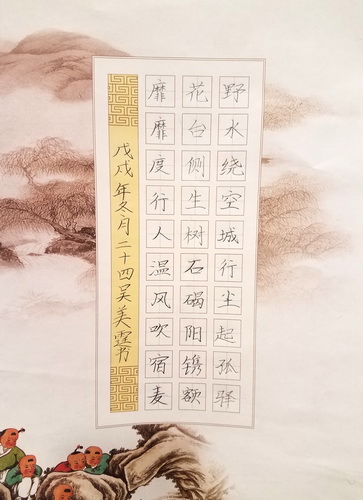 野水绕空城行尘起孤驿
花台侧生树石碣阳镌额
靡靡度行人温风吹宿麦
戊戌年冬月二十四吴美霆书